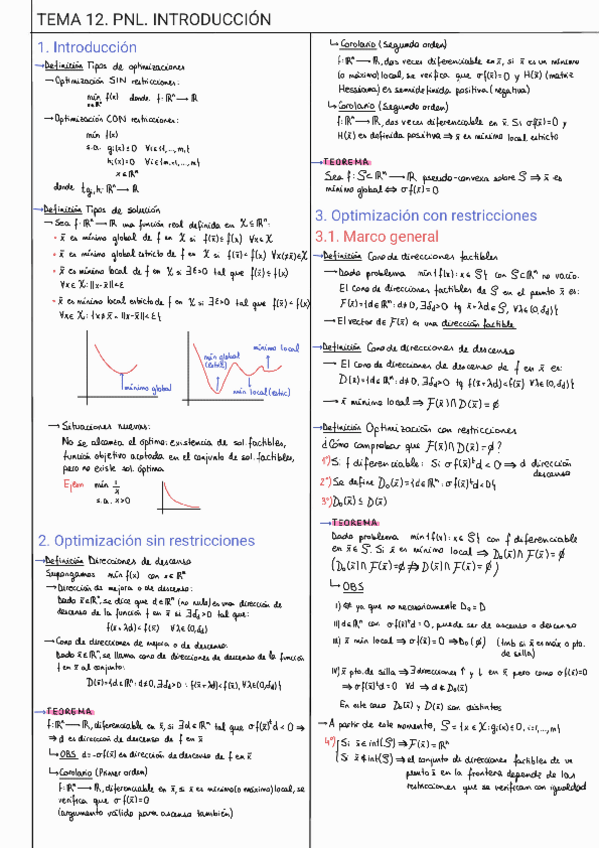 TEMA 12. PNL. INTRODUCCIÓN
1. Introducción
→ Definición Tipos de optimizaciones
→ Optimización SIN restricciones:
mín f(x) donde f: ℝⁿ → ℝ
x∈ℝⁿ
→ Optimización CON restricciones:
mín f(x)
s.a. gᵢ(x) ≤ 0 ∀i∈{1,...,m}
hᵢ(x) = 0 ∀i∈{m+1,...,m}
x∈ℝⁿ
donde f,g,h: ℝⁿ → ℝ
→ Definición Tipos de solución
→ Sea f: ℝⁿ → ℝ una función real definida en X ⊆ ℝⁿ:
• x̄ es mínimo global de f en X si f(x̄) ≤ f(x) ∀x∈X
• x̄ es mínimo global estricto de f en X si f(x̄) < f(x) ∀x(≠x̄)∈X
• x̄ es mínimo local de f en X si ∃ε>0 tal que f(x̄) ≤ f(x)
∀x∈X: ||x-x̄||<ε
• x̄ es mínimo local estricto de f en X si ∃ε>0 tal que f(x̄) < f(x)
∀x∈X: {x≠x̄ ∧ ||x-x̄||<ε}
mínimo global
mín global (estric)
mínimo local
mín local (estric)
→ Situaciones nuevas:
No se alcanza el óptimo: existencia de sol. factibles,
función objetivo acotada en el conjunto de sol. factibles,
pero no existe sol. óptima
Ejem mín 1/x
s.a. x>0
2. Optimización sin restricciones
→ Definición Direcciones de descenso
Supongamos mín f(x) con x∈ℝⁿ
→ Dirección de mejora o de descenso:
Dado x̄∈ℝⁿ, se dice que d∈ℝⁿ (no nula) es una dirección de
descenso de la función f en x̄ si ∃δ_d>0 tal que:
f(x̄+λd)<f(x̄) ∀λ∈(0,δ_d)
→ Cono de direcciones de mejora o de descenso:
Dado x̄∈ℝⁿ, se llama cono de direcciones de descenso de la función
f en x̄ al conjunto:
D(x̄)={d∈ℝⁿ: d≠0, ∃δ_d>0 : f(x̄+λd)<f(x̄), ∀λ∈(0,δ_d)}
→ TEOREMA
f: ℝⁿ → ℝ, diferenciable en x̄, si ∃d∈ℝⁿ tal que ∇f(x̄)ᵗd < 0 ⇒
⇒ d es dirección de descenso de f en x̄
↳ OBS d=-∇f(x̄) es dirección de descenso de f en x̄
↳ Corolario (Primer orden)
f: ℝⁿ → ℝ, diferenciable en x̄, si x̄ es mínimo (o máximo) local, se
verifica que ∇f(x̄)=0
(argumento válido para ascenso también)
↳ Corolario (Segundo orden)
f: ℝⁿ → ℝ, dos veces diferenciable en x̄, si x̄ es un mínimo
(o máximo) local, se verifica que ∇f(x̄)=0 y H(x̄) (matriz
Hessiana) es semidefinida positiva (negativa)
↳ Corolario (Segundo orden)
f: ℝⁿ → ℝ, dos veces diferenciable en x̄. Si ∇f(x̄)=0 y
H(x̄) es definida positiva ⇒ x̄ es mínimo local estricto
→ TEOREMA
Sea f: S⊂ℝⁿ → ℝ pseudo-convexa sobre S ⇒ x̄ es
mínimo global ⇔ ∇f(x̄)=0
3. Optimización con restricciones
3.1. Marco general
→ Definición Cono de direcciones factibles
→ Dado problema mín{f(x): x∈S} con S⊂ℝⁿ no vacío.
El cono de direcciones factibles de S en el punto x̄ es:
F(x̄)={d∈ℝⁿ: d≠0, ∃δ_d>0 tq x̄+λd∈S, ∀λ∈(0,δ_d)}
→ El vector de F(x̄) es una dirección factible
→ Definición Cono de direcciones de descenso
→ El cono de direcciones de descenso de f en x̄ es:
D(x̄)={d∈ℝⁿ: d≠0, ∃δ_d>0 tq f(x̄+λd)<f(x̄) ∀λ∈(0,δ_d)}
→ x̄ mínimo local ⇒ F(x̄)∩D(x̄)=∅
→ Definición Optimización con restricciones
¿Cómo comprobar que F(x̄)∩D(x̄)=∅?
1º) Si f diferenciable: Si ∇f(x̄)ᵗd<0 ⇒ d dirección
descenso
2º) Se define D₀(x̄)={d∈ℝⁿ: ∇f(x̄)ᵗd<0}
3º) D₀(x̄) ⊆ D(x̄)
→ TEOREMA
Dado problema mín{f(x): x∈S} con f diferenciable
en x̄∈S. Si x̄ es mínimo local ⇒ D₀(x̄)∩F(x̄)=∅
(D₀(x̄)∩F(x̄)=∅ ⇏ D(x̄)∩F(x̄)=∅)
↳ OBS
I) ⇍ ya que no necesariamente D₀=D
II) d∈ℝⁿ con ∇f(x̄)ᵗd=0, puede ser de ascenso o descenso
III) x̄ mín local ⇒ ∇f(x̄)=0 ⇒ D₀(x̄)=∅ (tmb si x̄ es máx o pto.
de silla)
IV) x̄ pto. de silla ⇒ ∃ direcciones ↑ y ↓ en x̄ pero como ∇f(x̄)=0
⇒ ∇f(x̄)ᵗd=0 ∀d ⇒ d∉D₀(x̄)
En este caso D₀(x̄) y D(x̄) son distintos
→ A partir de este momento, S={x∈X: gᵢ(x)≤0, i=1,...,m}
4º) Si x̄∈int(S) ⇒ F(x̄)=ℝⁿ
Si x̄∉int(S) ⇒ el conjunto de direcciones factibles de un
punto x̄ en la frontera depende de las
restricciones que se verifican con igualdad